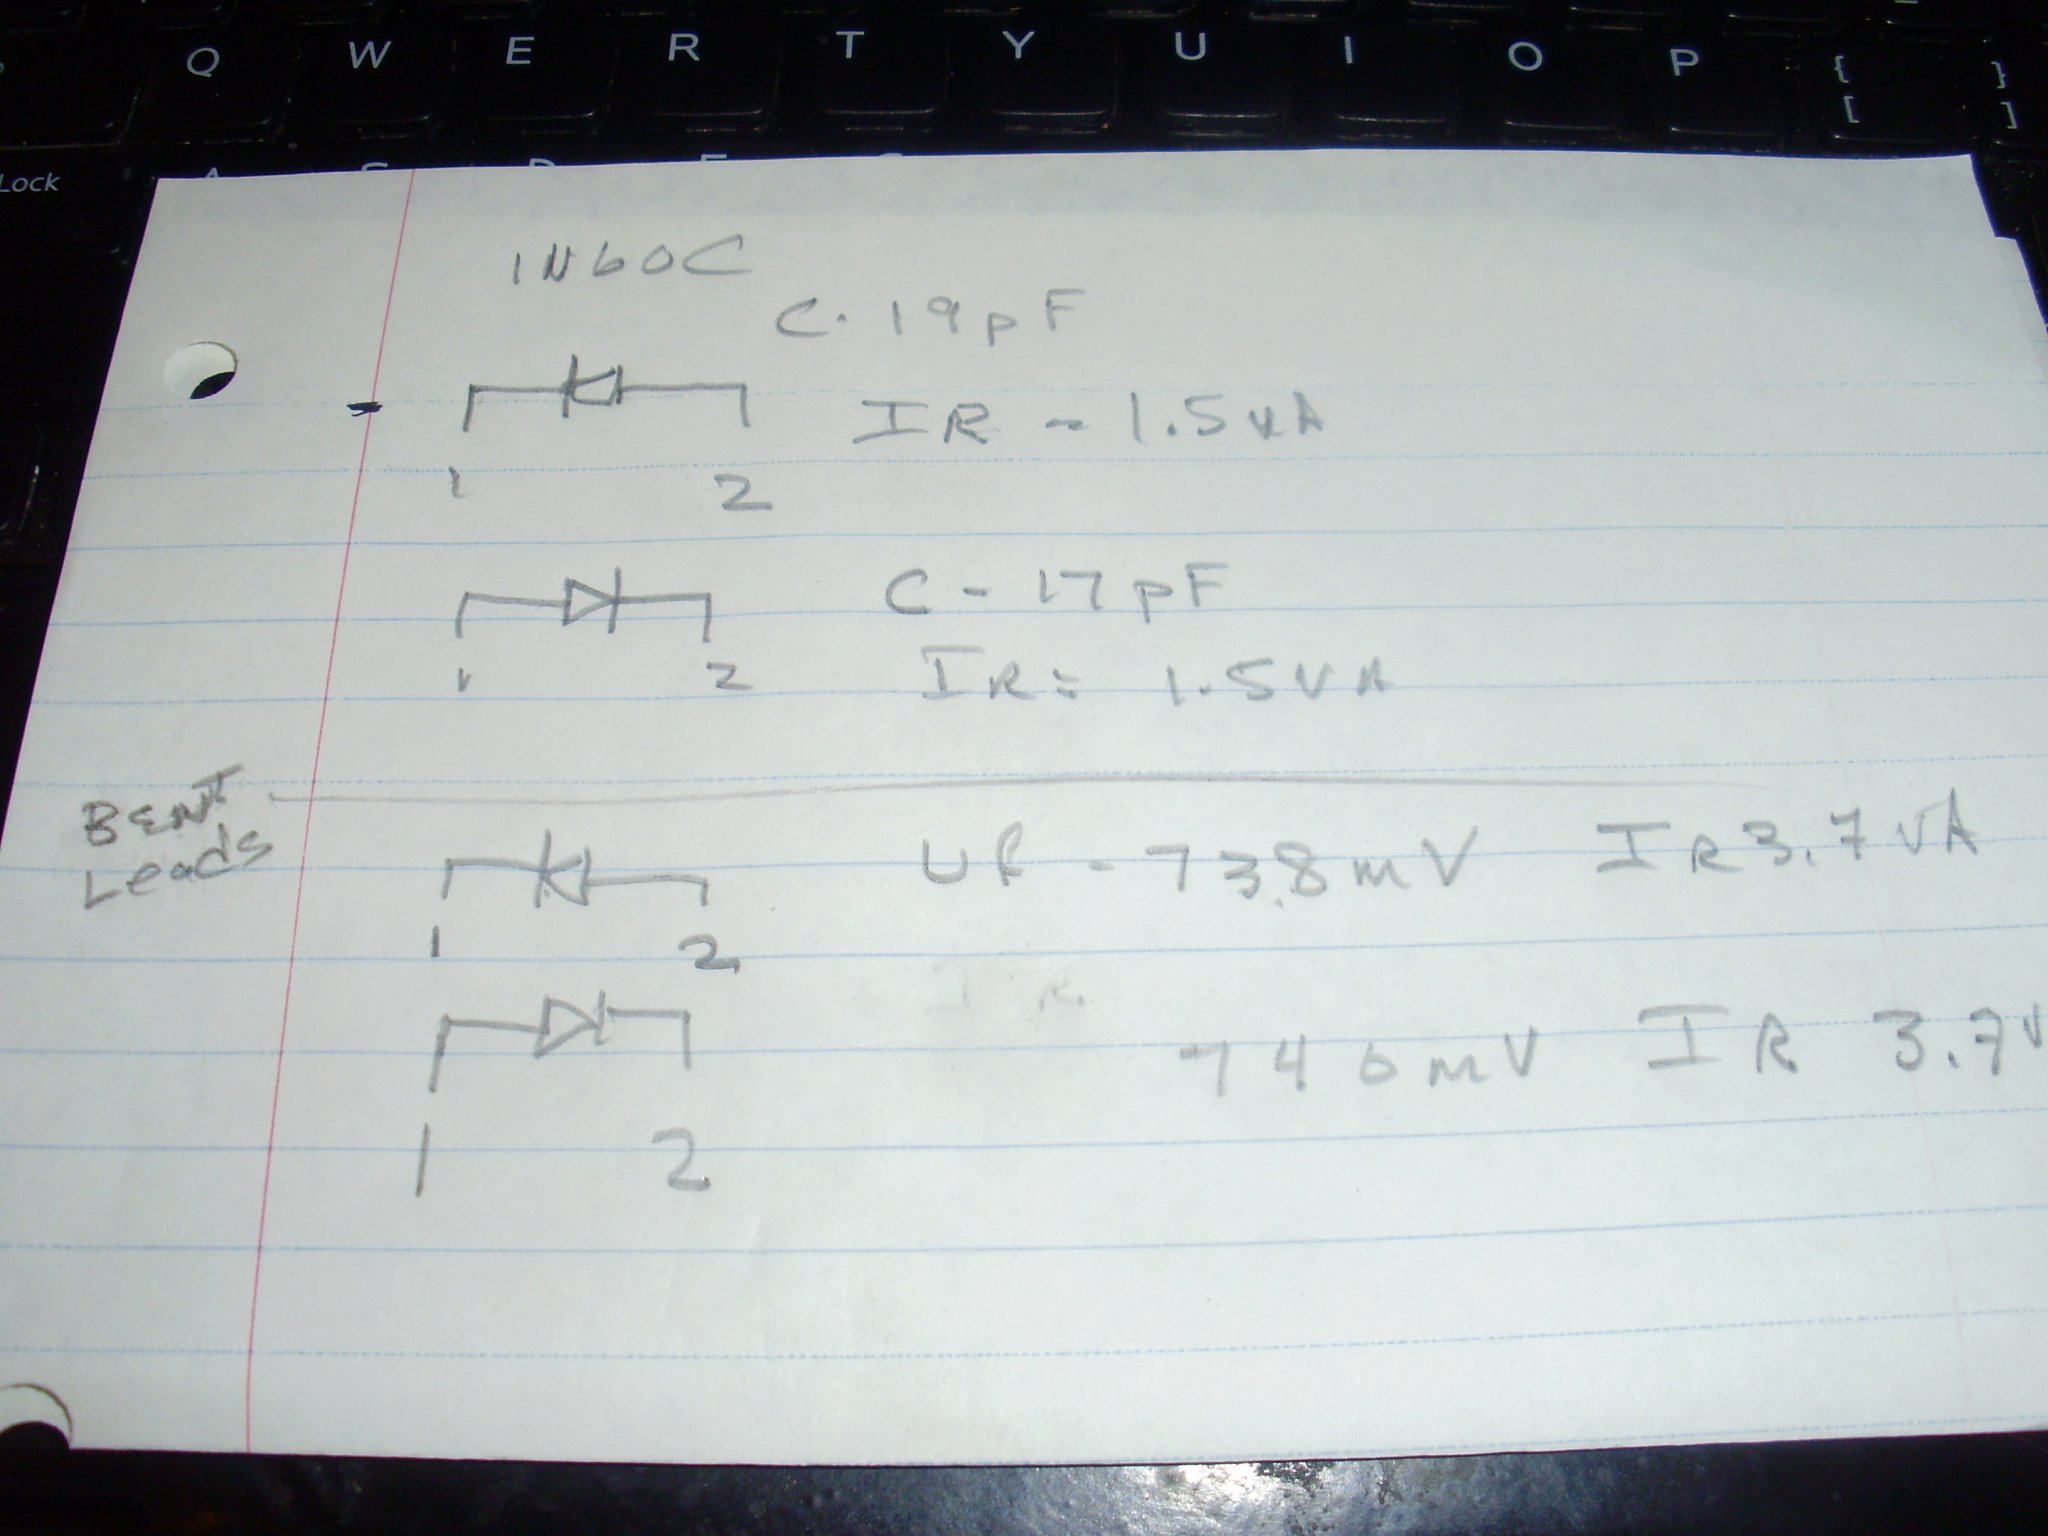 Q W E R T Y U I O P { }
[ ]
Lock
1N60C
C. 19pF
IR - 1.5uA
1 2
C - 17pF
1 2
IR = 1.5uA
BENT
Leads
Uf - 738mV IR 3.7uA
1 2
740mV IR 3.7u
1 2